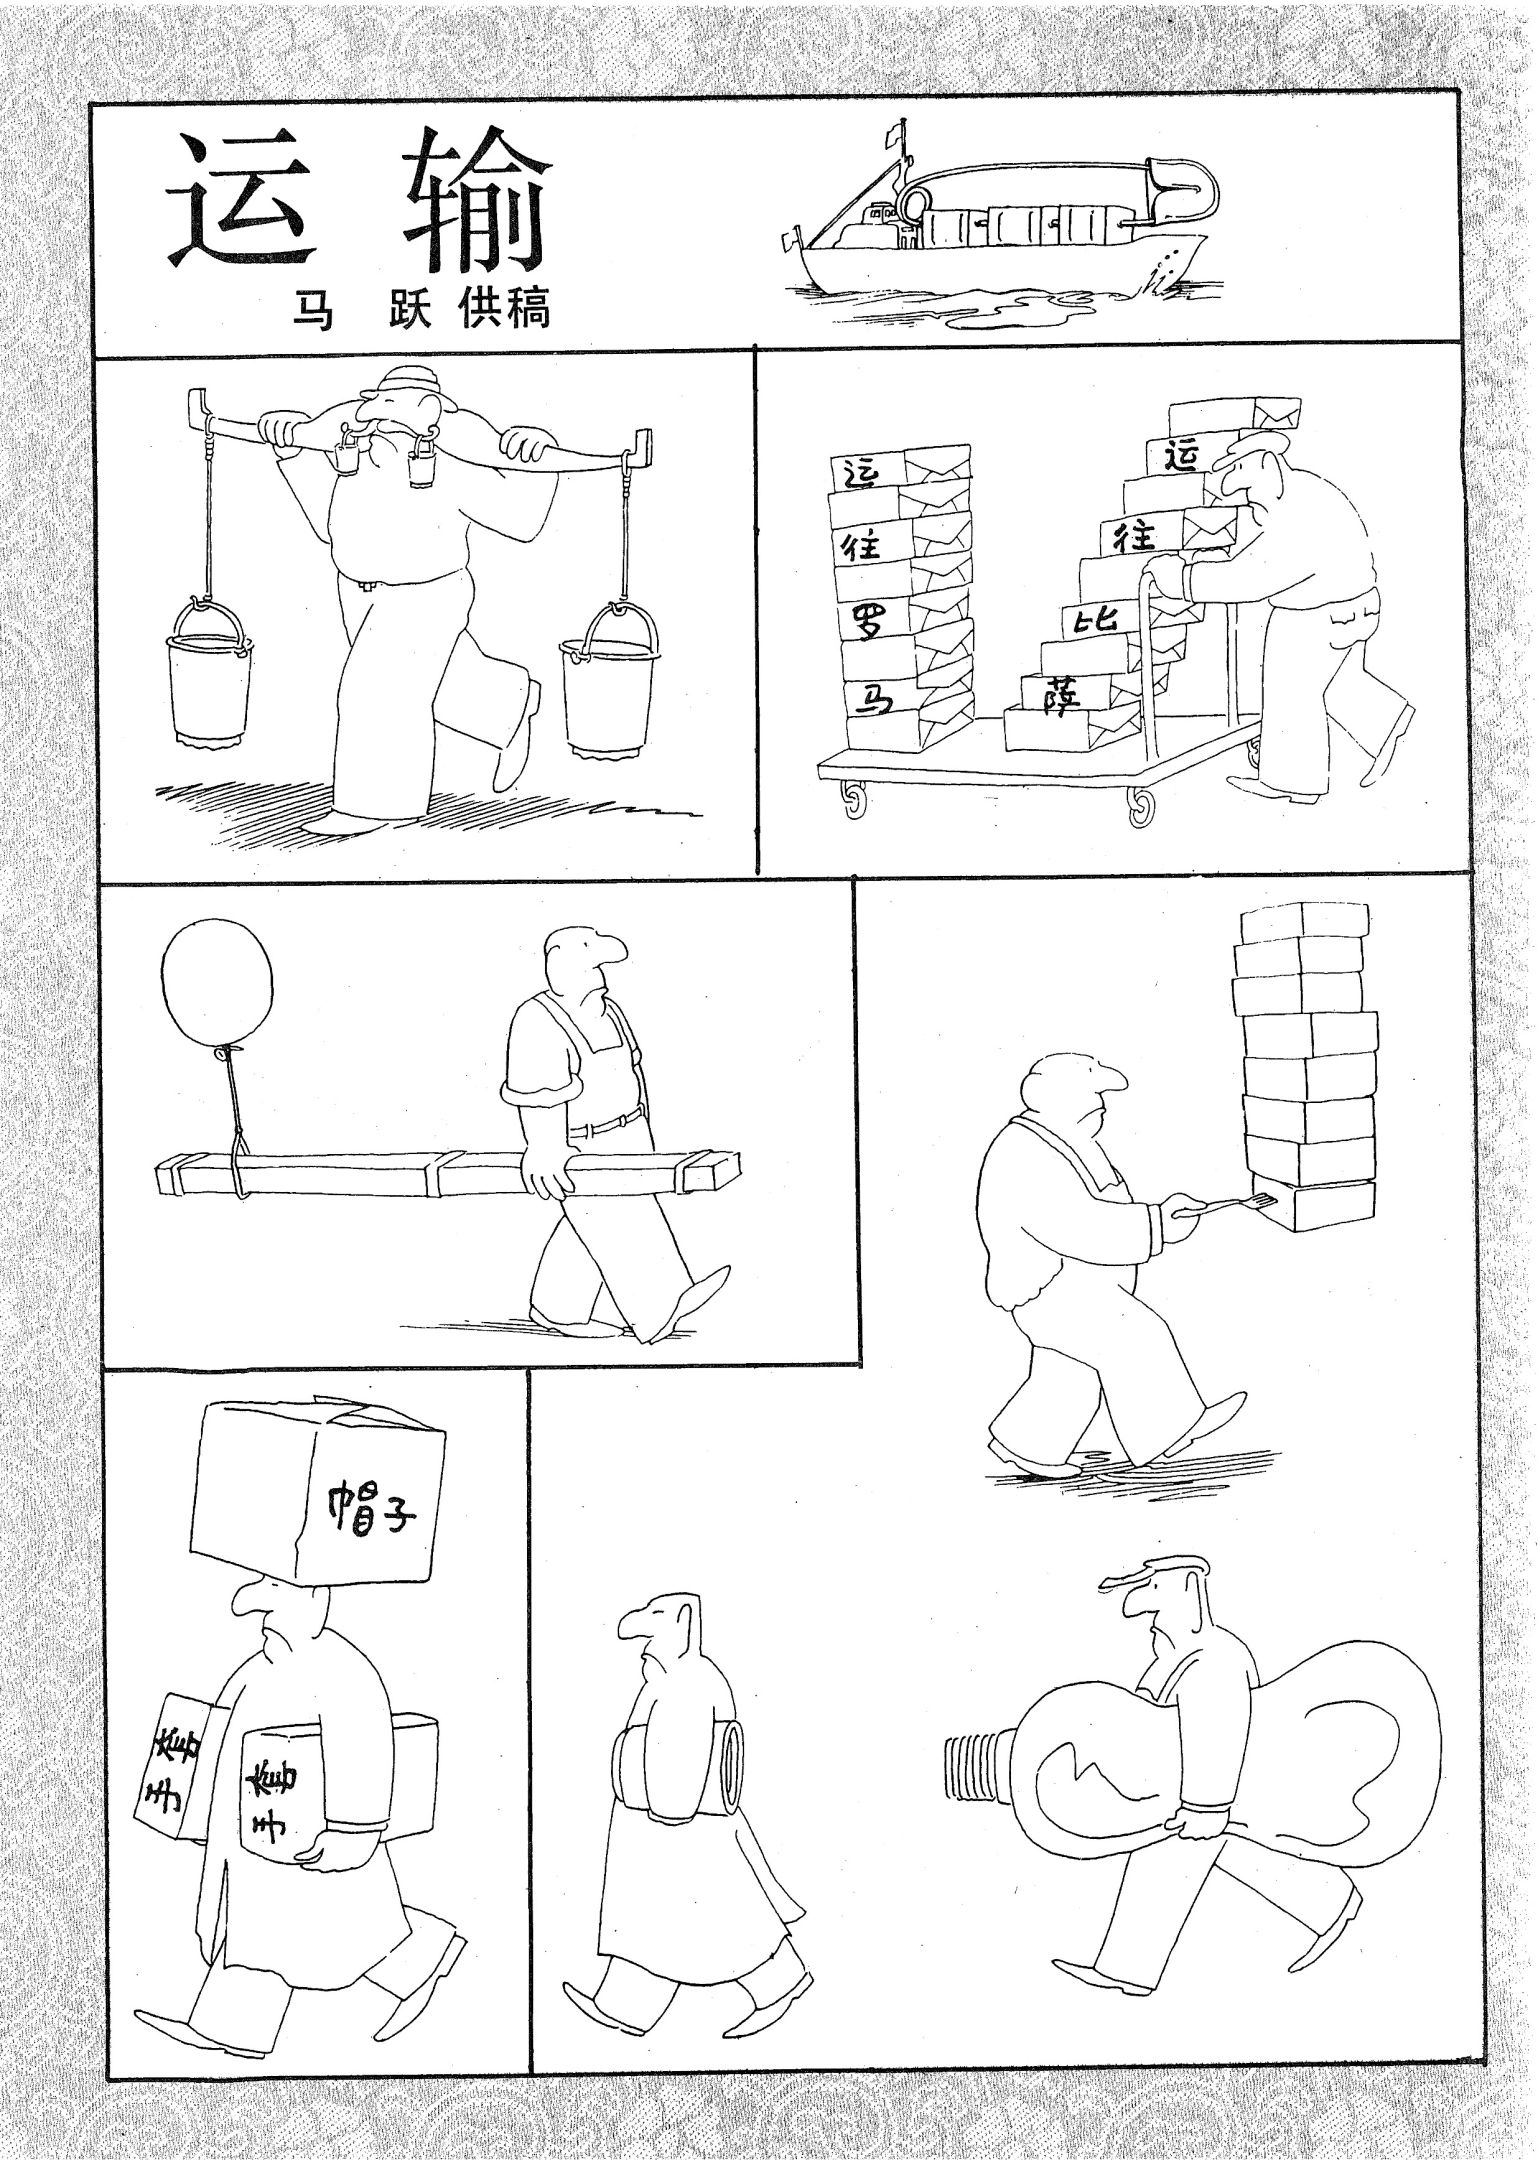 运输
马 跃 供稿
运
往
罗
马
运
往
比
萨
帽子
手套
手套